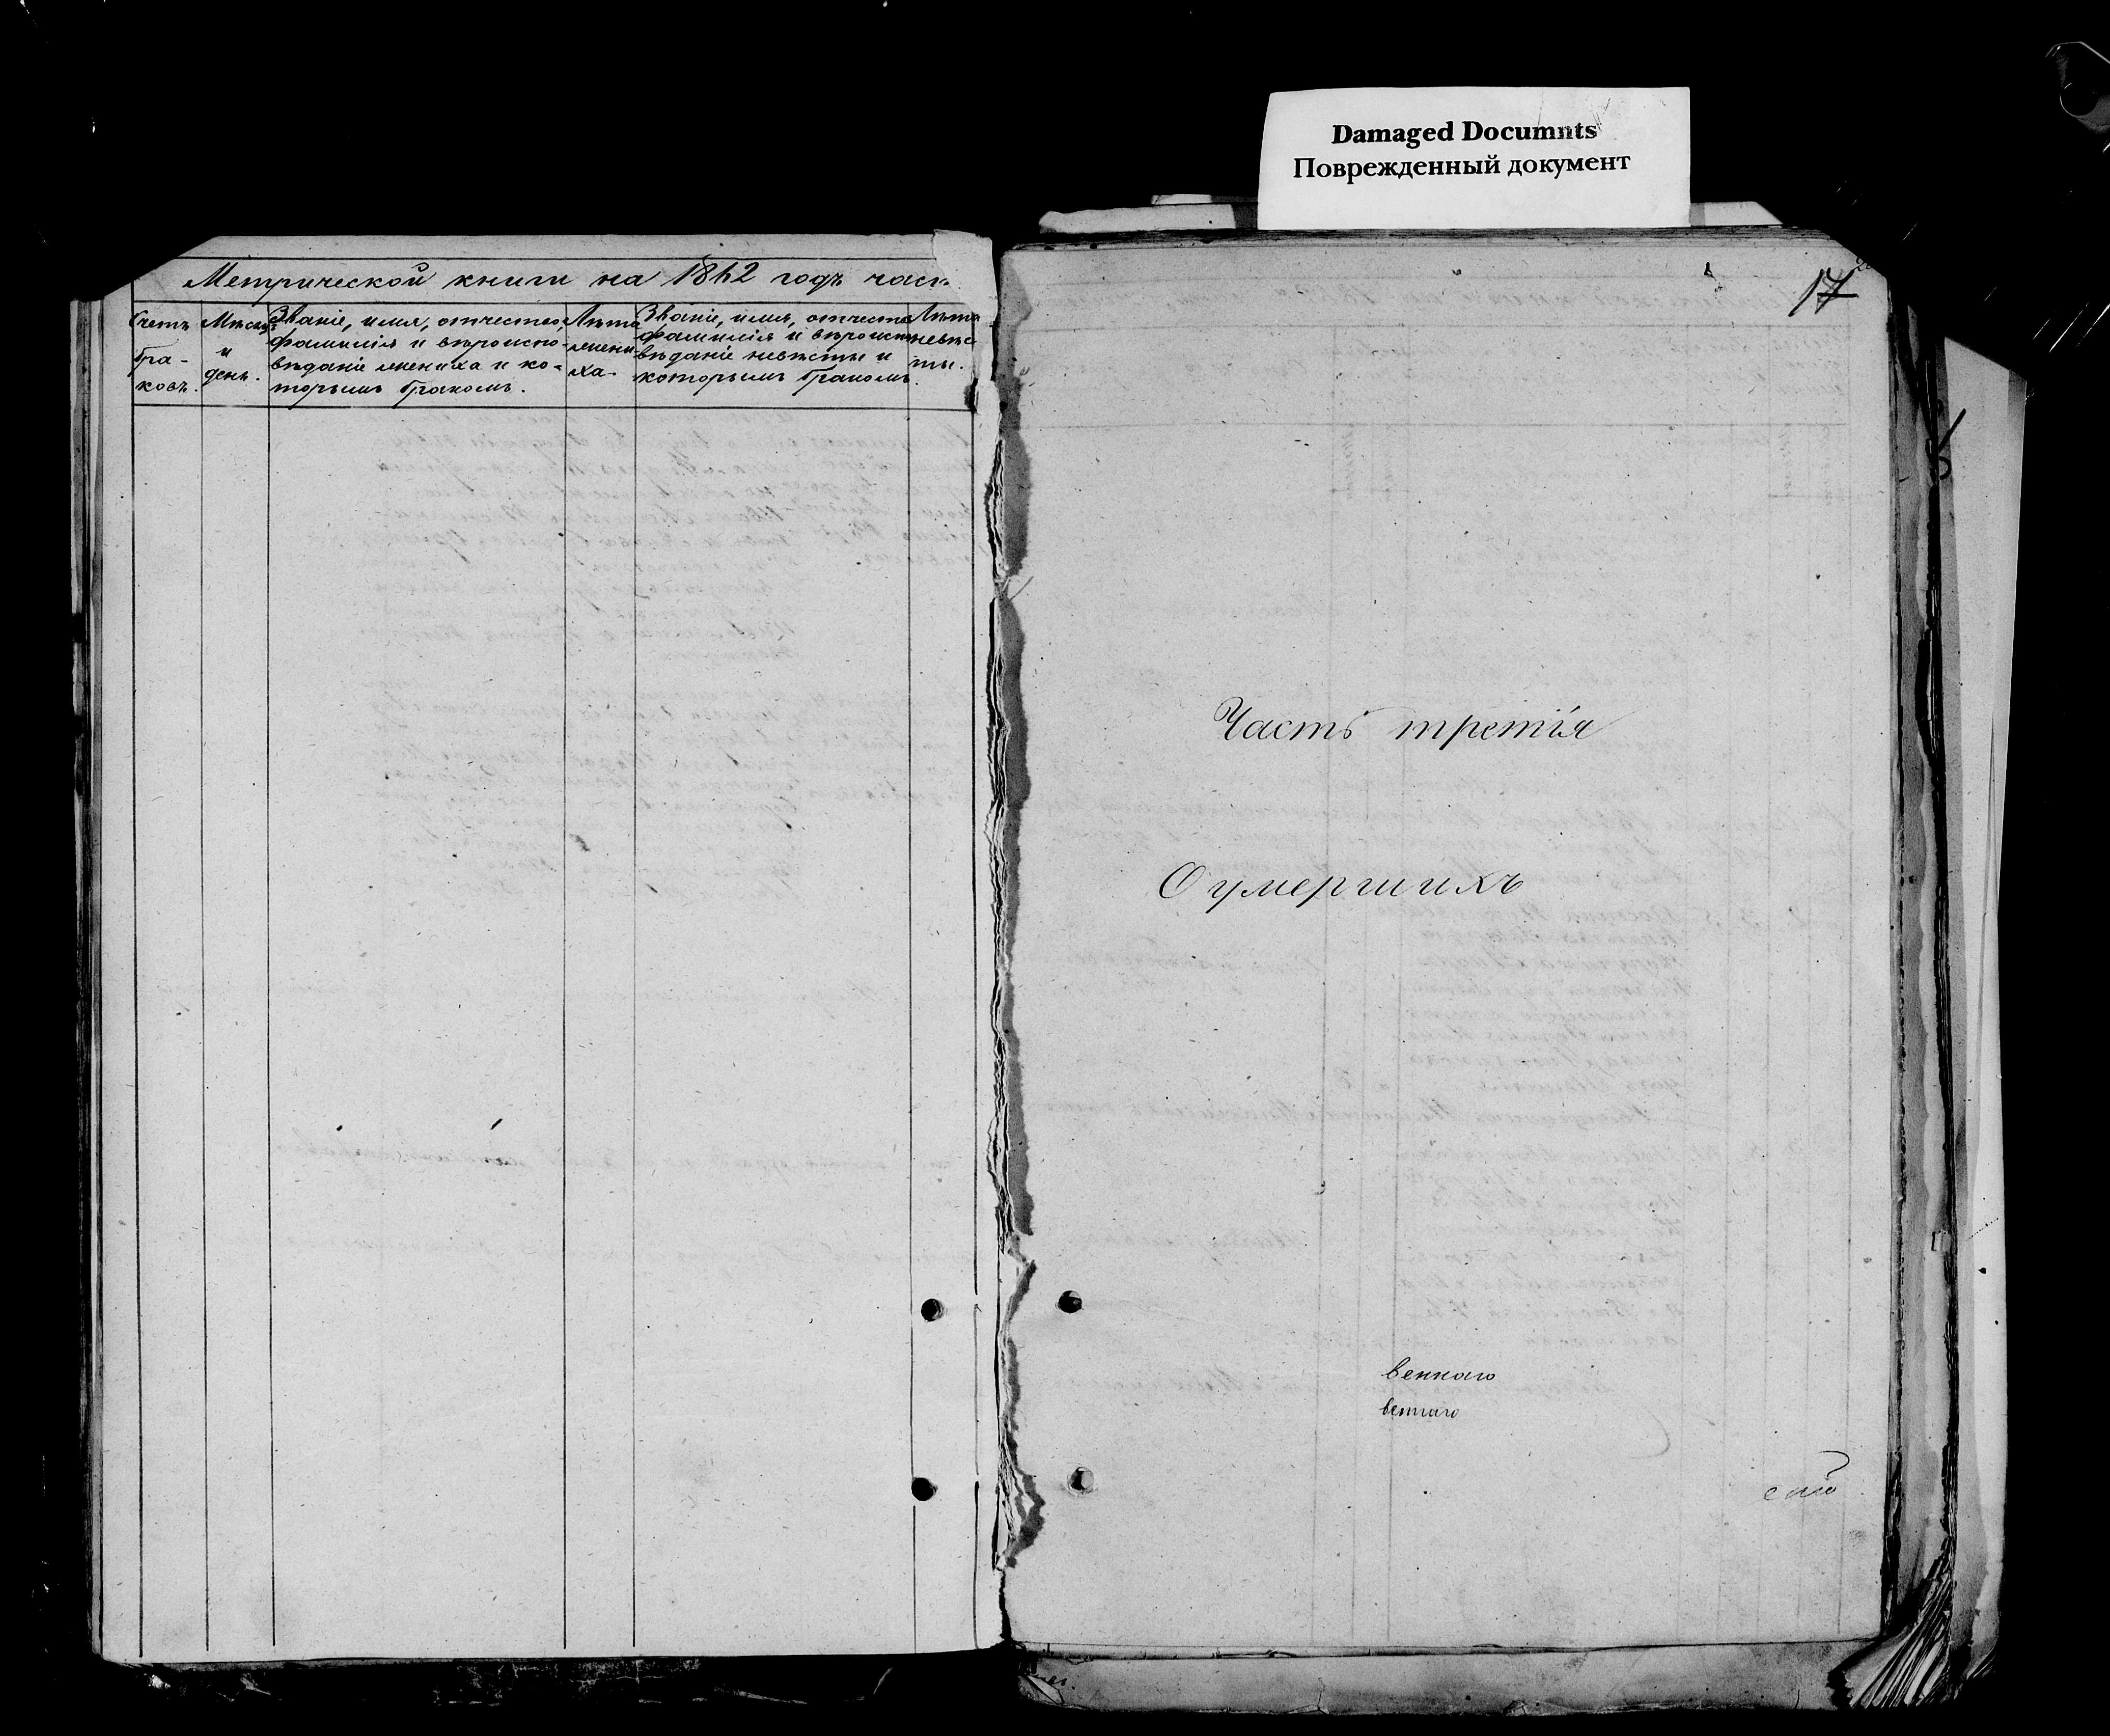 Damaged Documnts
Поврежденный документ
Метрической книги на 1862 годъ част
Счетъ
бра-
ковъ.
Мѣсяцъ
и
день.
Званіе, имя, отчество,
фамилія и вѣроиспо-
вѣданіе жениха и ко-
торымъ бракомъ.
Лѣта
жени-
ха.
Званіе, имя, отчество
фамилія и вѣроиспо
вѣданіе невѣсты и
которымъ бракомъ.
Лѣта
невѣс
ты.
17
Часть третія
О умершихъ
веннаго
веннаго